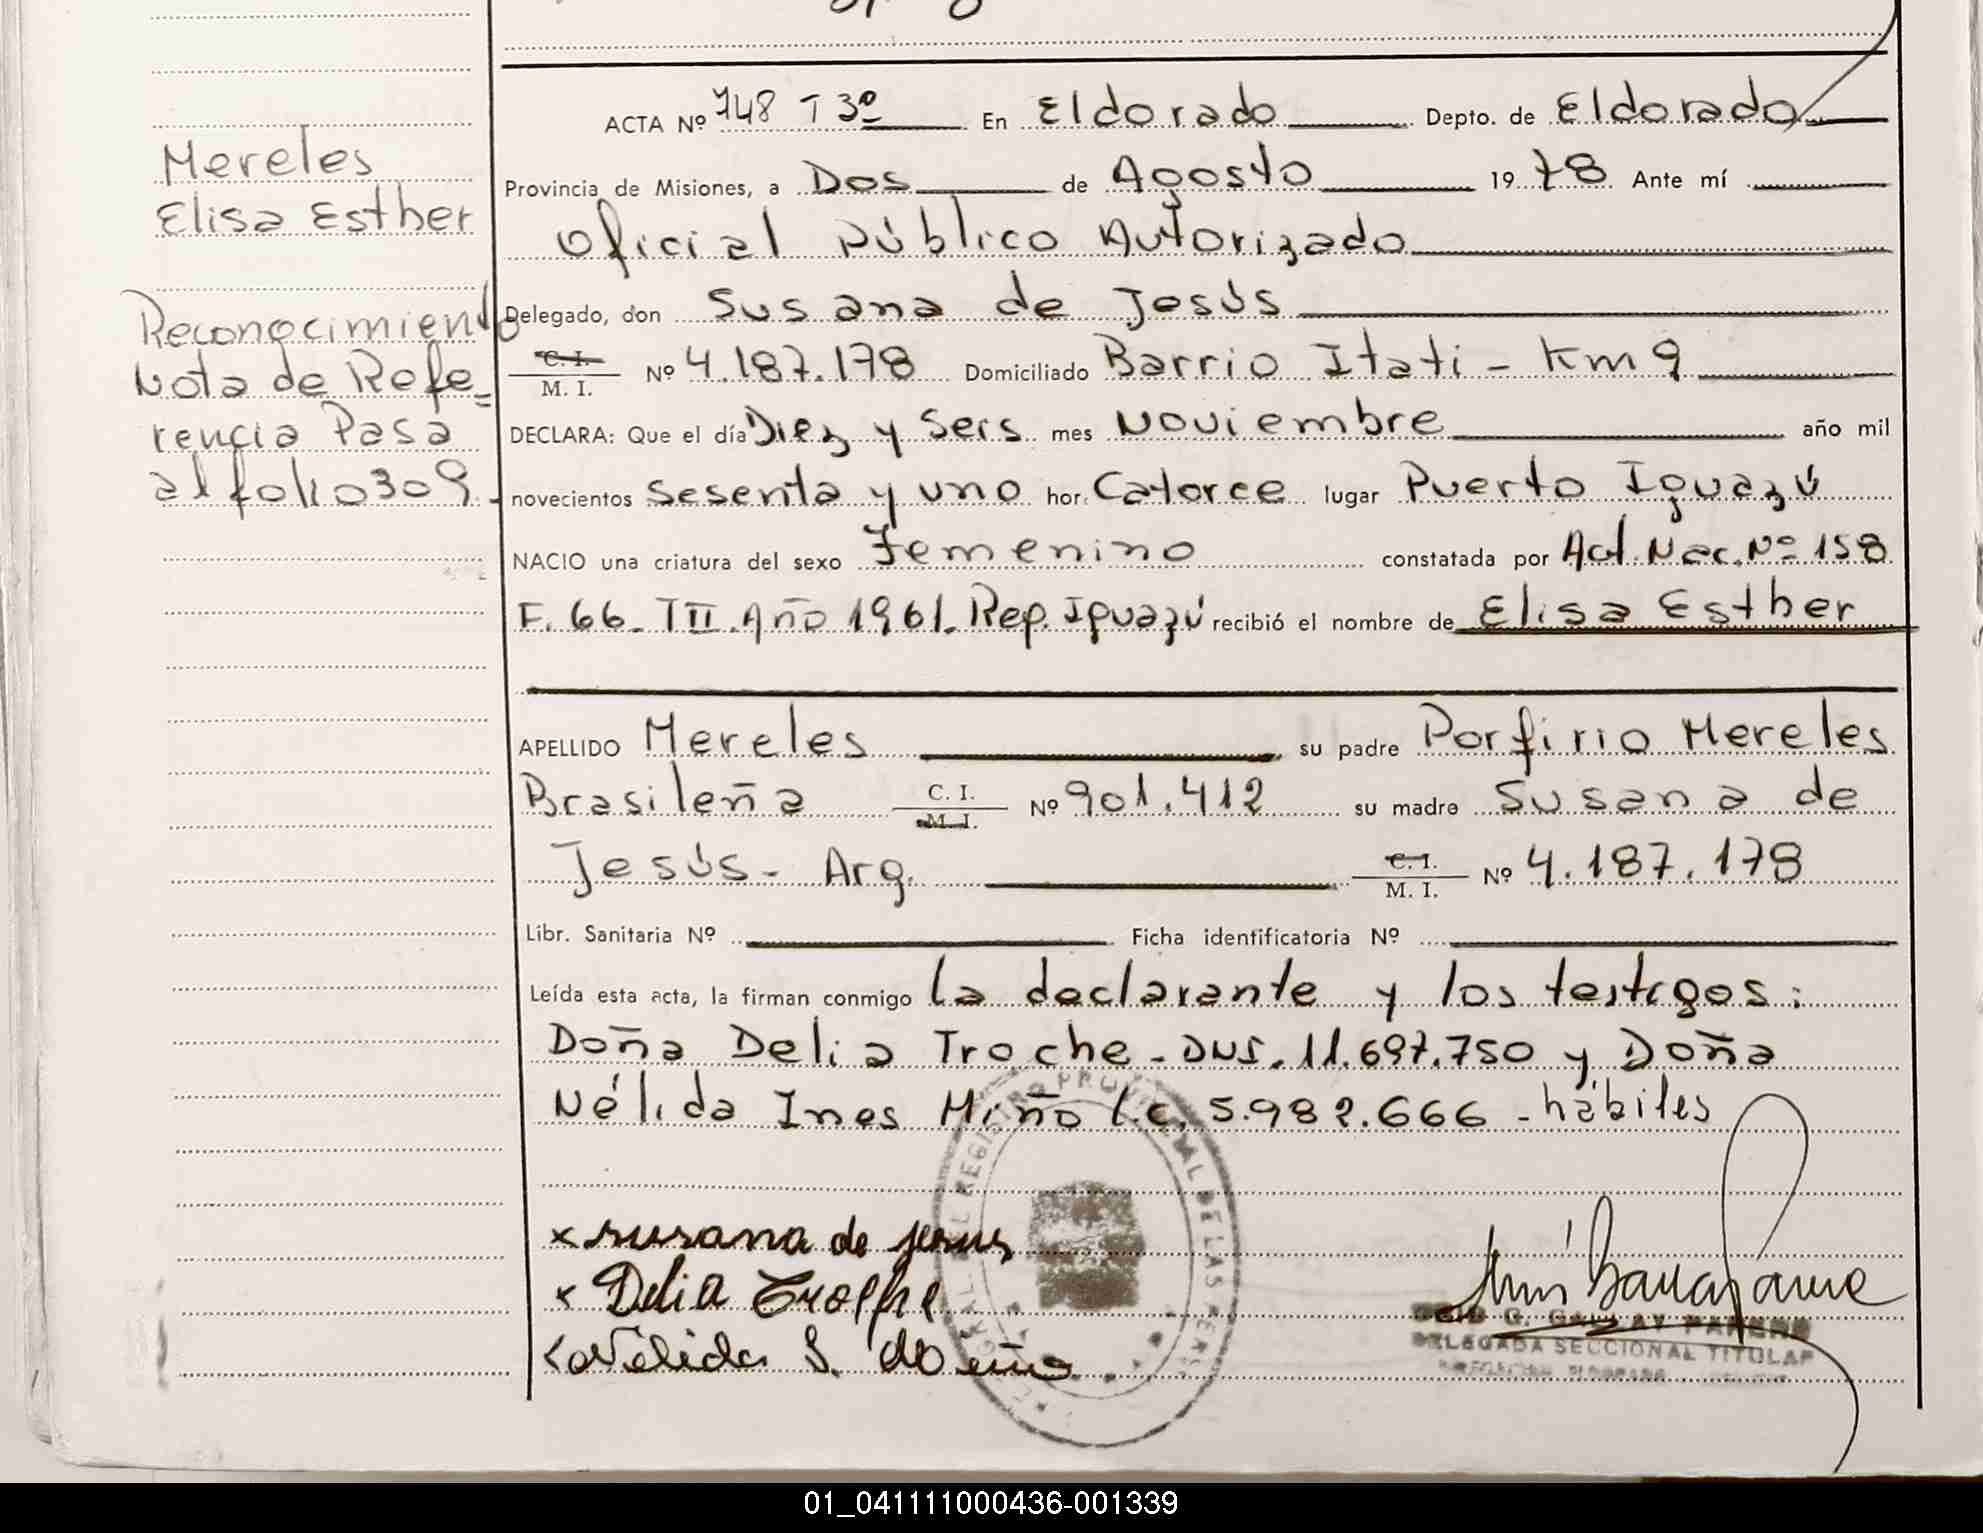 Mereles
Elisa Esther
Reconocimiento
Nota de Refe=
rencia Pasa
al folio 309.-
ACTA Nº 748 T 3º En Eldorado Depto. de Eldorado
Provincia de Misiones, a Dos de Agosto 1978 Ante mí
Oficial Público Autorizado
Delegado, don Susana de Jesús
C. I. / M. I. Nº 4.187.178 Domiciliado Barrio Itati - Km 9
DECLARA: Que el día Diez y Seis mes Noviembre año mil
novecientos Sesenta y uno hor. Catorce lugar Puerto Iguazú
NACIO una criatura del sexo Femenino constatada por Act. Nac. Nº 158
F. 66. T II. Año 1961. Rep. Iguazú recibió el nombre de Elisa Esther
APELLIDO Mereles su padre Porfirio Mereles
Brasileña C. I. / M. I. Nº 901.412 su madre Susana de
Jesús - Arg. C. I. / M. I. Nº 4.187.178
Libr. Sanitaria Nº Ficha identificatoria Nº
Leída esta acta, la firman conmigo la declarante y los testigos:
Doña Delia Troche - DNI. 11.697.750 y Doña
Nélida Ines Miño L.C. 5.982.666 - hábiles
x susana de jesus
x Delia Troche
x Nélida I. Miño
REGISTRO PROVINCIAL DE LAS PERS
DELEGADA SECCIONAL TITULAR
01_041111000436-001339